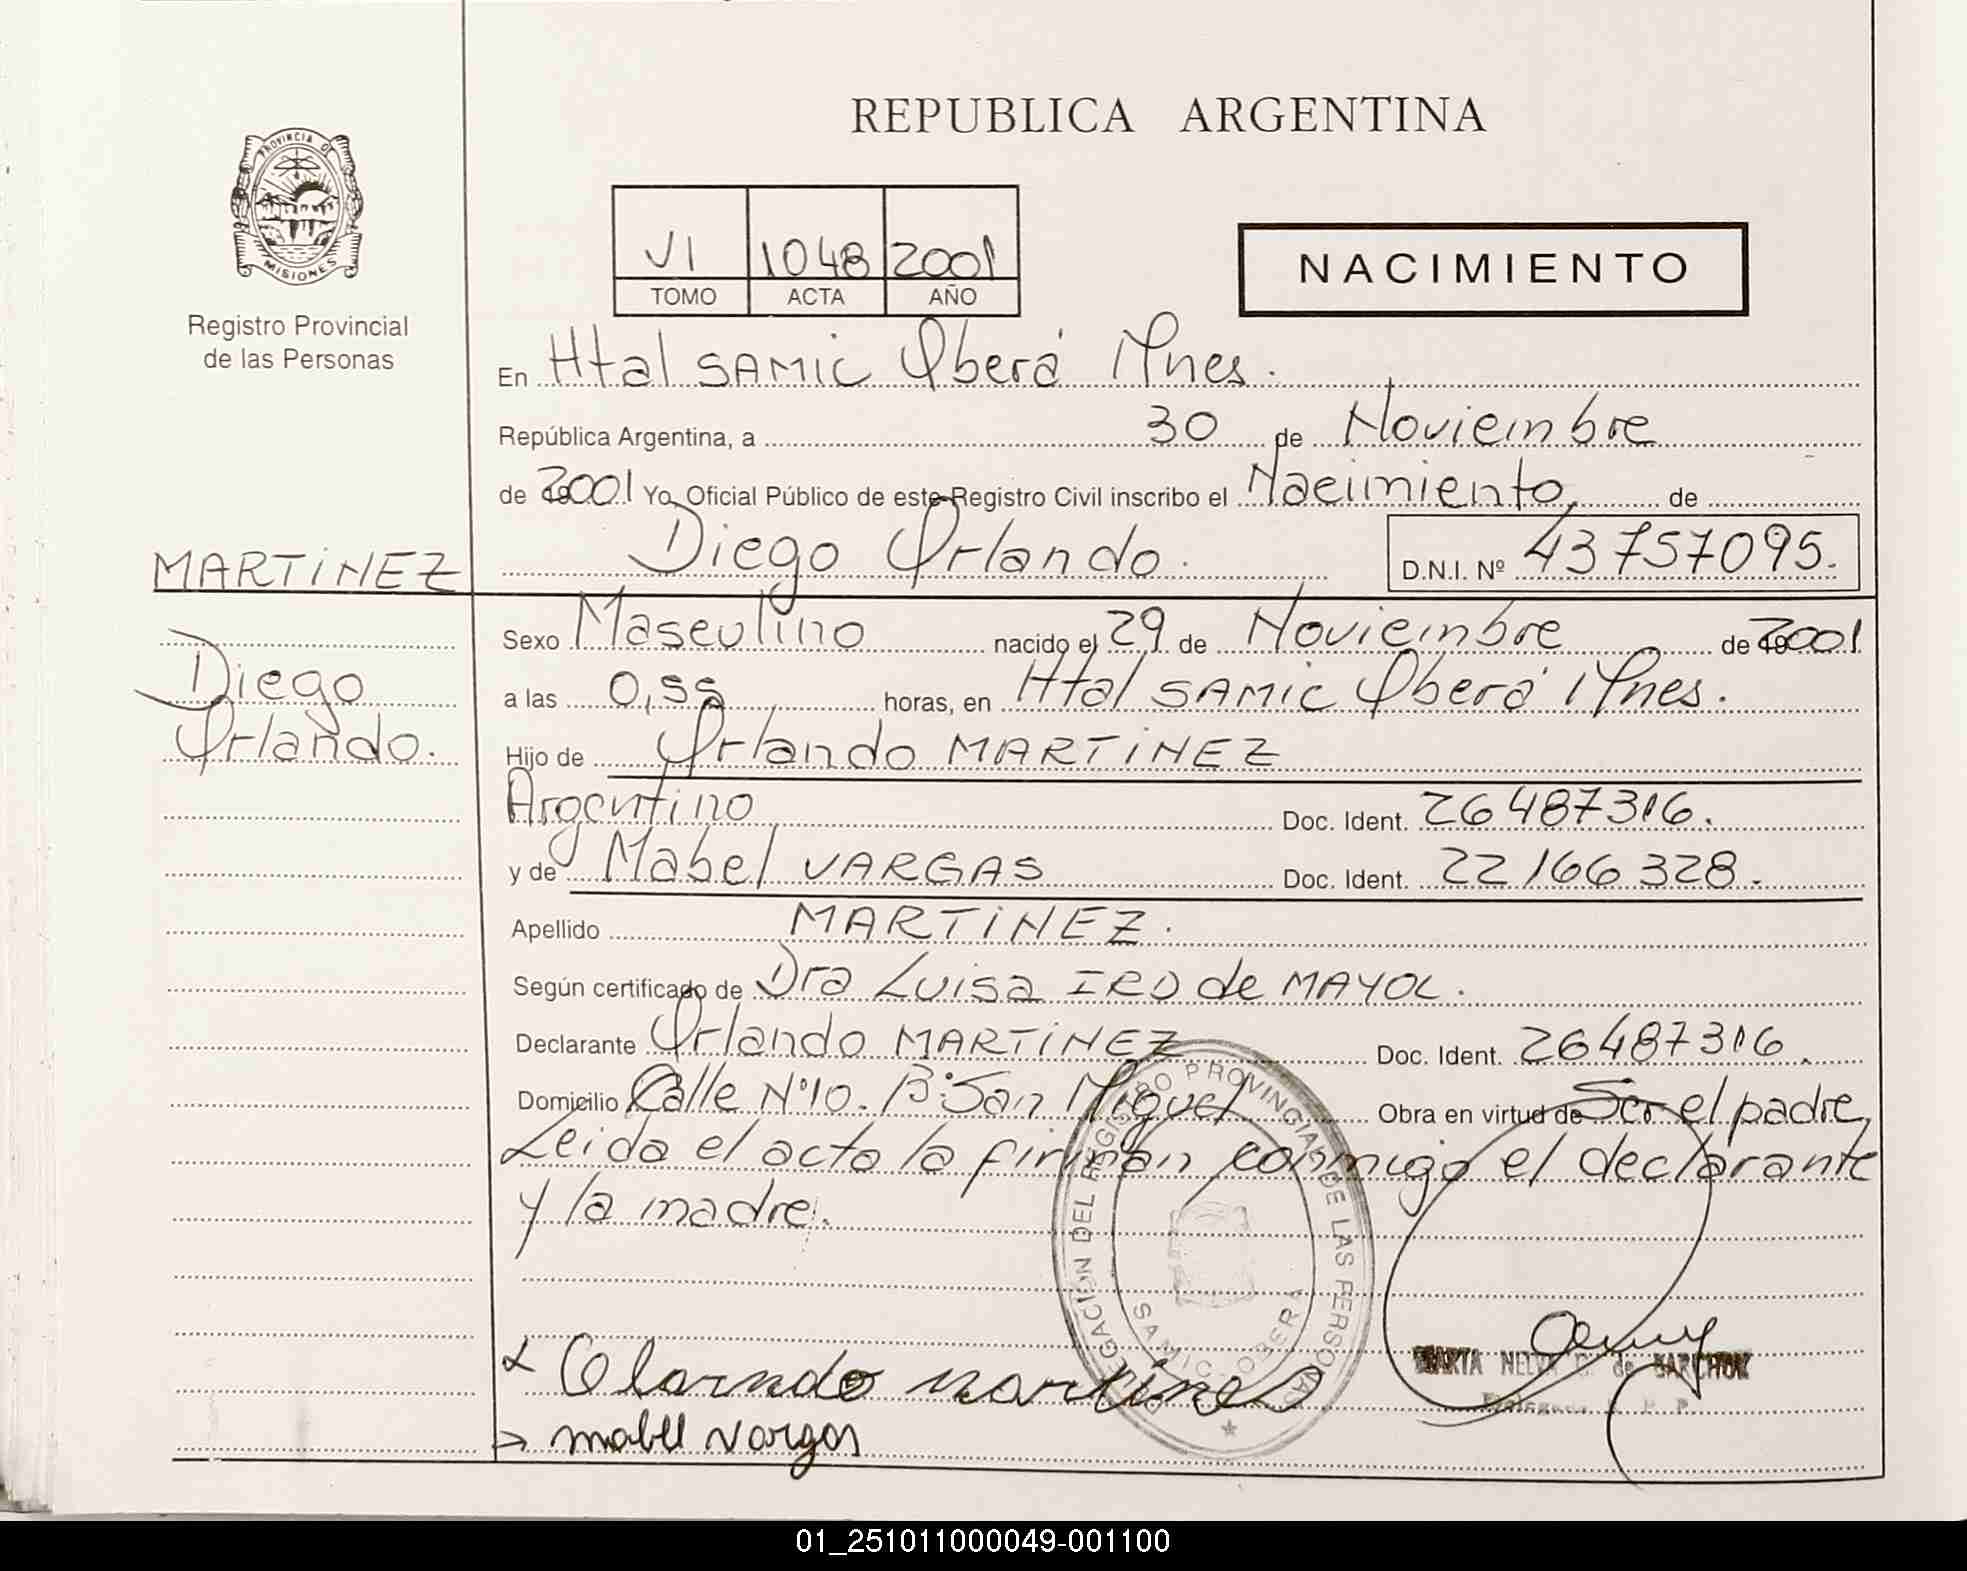 REPUBLICA ARGENTINA
PROVINCIA DE
MISIONES
Registro Provincial
de las Personas
VI 1048 2001
TOMO ACTA AÑO
NACIMIENTO
En Htal SAMIC Oberá Mnes.
República Argentina, a 30 de Noviembre
de 2001 Yo, Oficial Público de este Registro Civil inscribo el Nacimiento de
Diego Orlando. D.N.I. Nº 43757095.
MARTINEZ
Diego
Orlando.
Sexo Masculino nacido el 29 de Noviembre de 2001
a las 0,55 horas, en Htal SAMIC Oberá Mnes.
Hijo de Orlando MARTINEZ
Argentino Doc. Ident. 26487316.
y de Mabel VARGAS Doc. Ident. 22166328.
Apellido MARTINEZ.
Según certificado de Dra Luisa IRO de MAYOL.
Declarante Orlando MARTINEZ Doc. Ident. 26487316.
Domicilio Calle Nº10. Bº San Miguel Obra en virtud de Ser el padre,
Leida el acta la firman conmigo el declarante
y la madre.
DELEGACIÓN DEL REGISTRO PROVINCIAL DE LAS PERSONAS
SAMIC - OBERA
Olarndo martines
MARTA de
mabel vargas
01_251011000049-001100